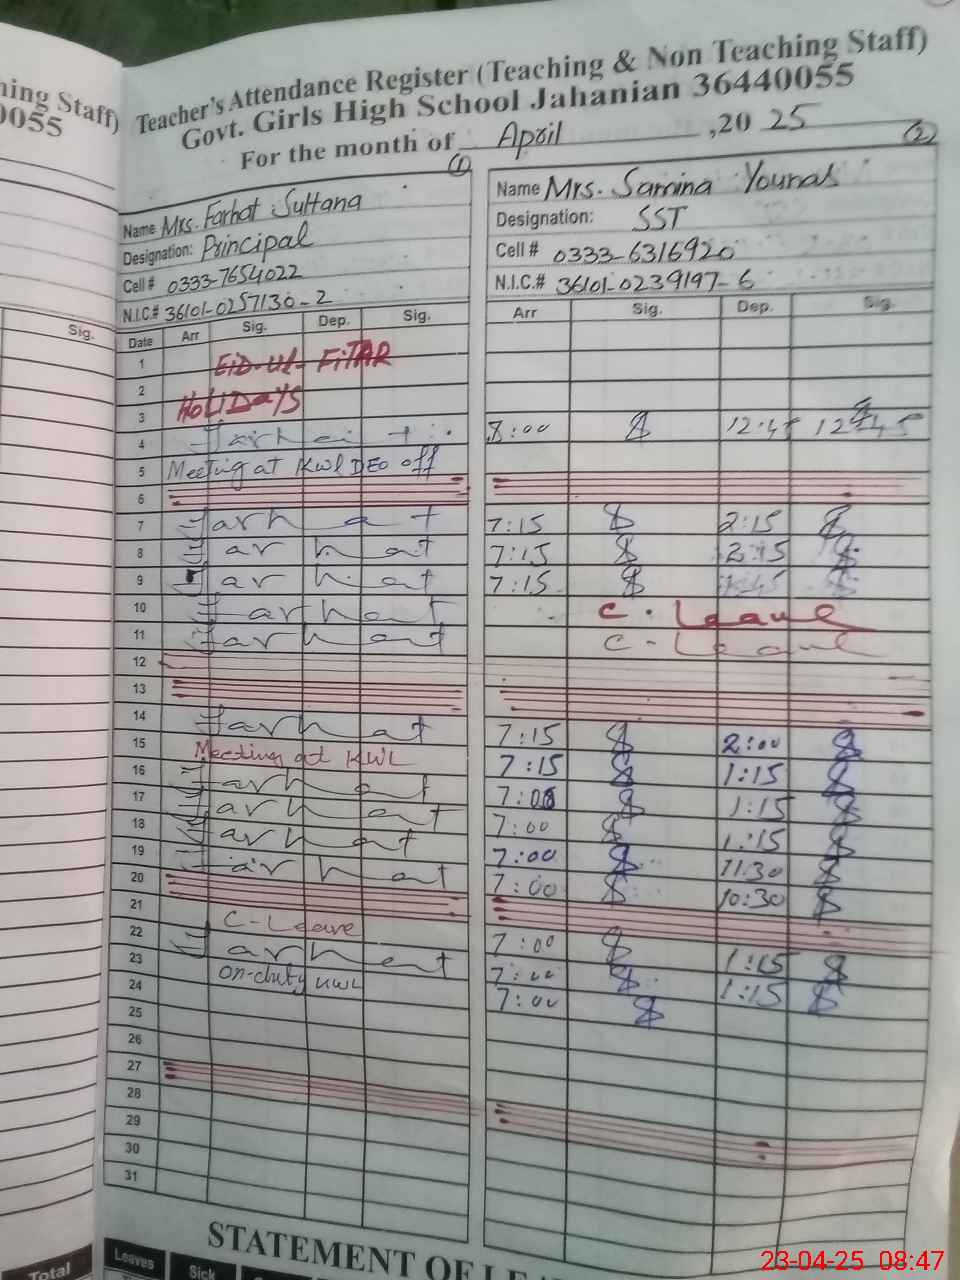 ning Staff)
0055
Sig.
Total
Teacher's Attendance Register (Teaching & Non Teaching Staff)
Govt. Girls High School Jahanian 36440055
For the month of April ,20 25
(1)
Name Mrs. Farhat Sultana
Designation: Principal
Cell # 0333-7654022
N.I.C.# 36101-0257130-2
Date Arr Sig. Dep. Sig.
1 EID-Ul-FITAR
2
3 HOLIDAYS
4 Farhat
5 Meeting at KWL DEO off
6
7 Farhat
8 Farhat
9 Farhat
10 Farhat
11 Farhat
12
13
14 Farhat
15 Meeting at KWL
16 Farhat
17 Farhat
18 Farhat
19 Farhat
20
21
22 C-Leave
23 Farhat
24 On-duty KWL
25
26
27
28
29
30
31
(2)
Name Mrs. Samina Younas
Designation: SST
Cell # 0333-6316920
N.I.C.# 36101-0239197-6
Arr Sig. Dep. Sig.
8:00 12:45 12:45
7:15 2:15
7:15 2:15
7:15
C. Leave
C-Leave
7:15 2:00
7:15 1:15
7:00 1:15
7:00 1:15
7:00 11:30
7:00 10:30
7:00 1:15
7:00 1:15
7:00
STATEMENT OF LE
Leaves Sick
23-04-25 08:47